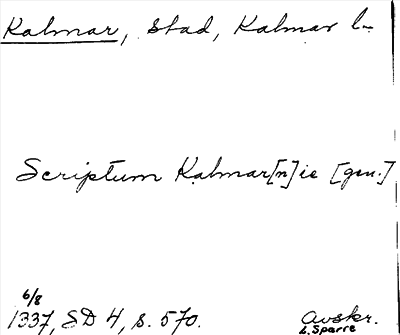 Kalmar, stad, Kalmar l-
Scriptum Kalmar[n]ie [gen.]
6/8
1337, SD 4, s. 570.
Avskr.
L. Sparre